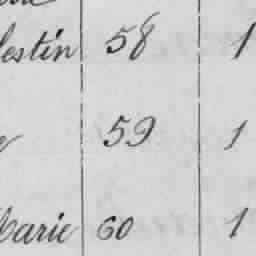 lestin 58 1
59 1
Marie 60 1